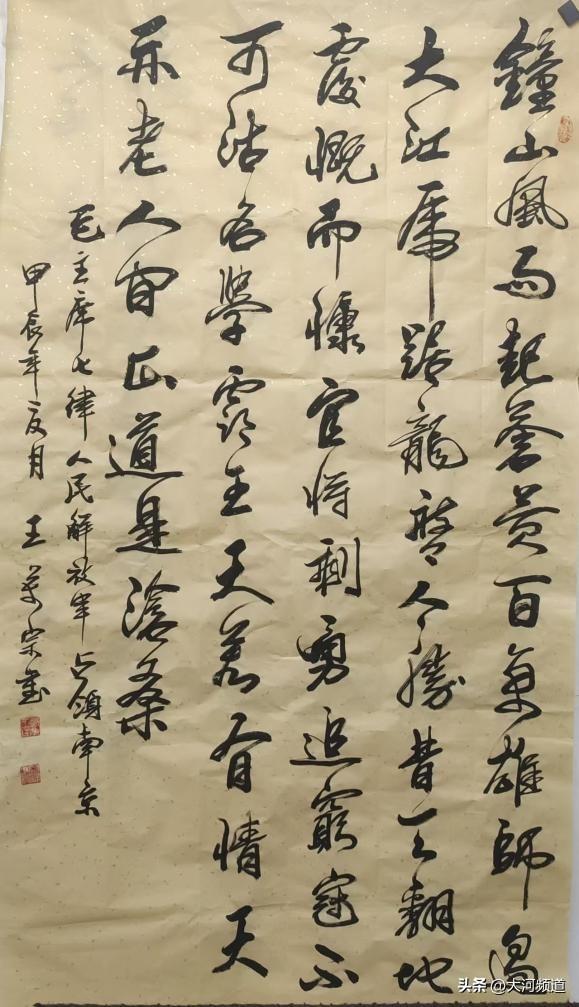 鐘山風雨起蒼黃百萬雄師過
大江虎踞龍盤今勝昔天翻地
覆慨而慷宜將剩勇追窮寇不
可沽名學霸王天若有情天
亦老人間正道是滄桑
毛主席七律人民解放軍占領南京
甲辰年夏月 王
头条 @大河频道